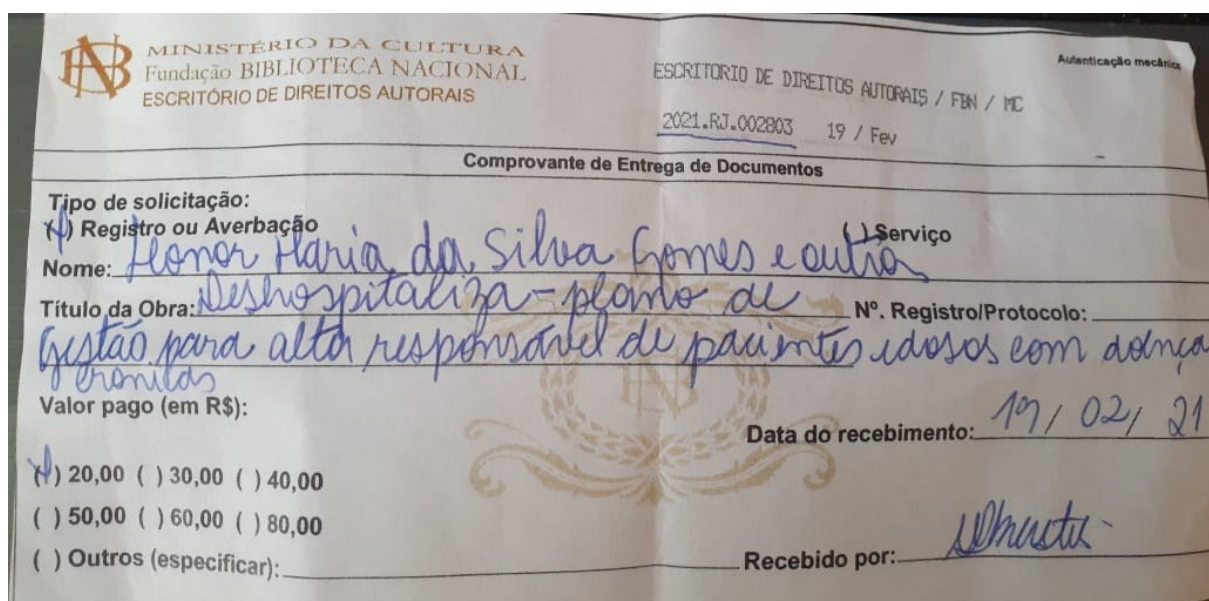 MINISTÉRIO DA CULTURA
Fundação BIBLIOTECA NACIONAL
ESCRITÓRIO DE DIREITOS AUTORAIS
Autenticação mecânica
ESCRITORIO DE DIREITOS AUTORAIS / FBN / MC
2021.RJ.002803 19 / Fev
Comprovante de Entrega de Documentos
Tipo de solicitação:
(x) Registro ou Averbação ( ) Serviço
Nome: Leonor Maria da Silva Gomes e outra
Título da Obra: Deshospitaliza - plano de Nº. Registro/Protocolo:
Gestão para alta responsável de pacientes idosos com doença
cronicas
Valor pago (em R$):
Data do recebimento: 19/ 02/ 21
(x) 20,00 ( ) 30,00 ( ) 40,00
( ) 50,00 ( ) 60,00 ( ) 80,00
( ) Outros (especificar):
Recebido por: